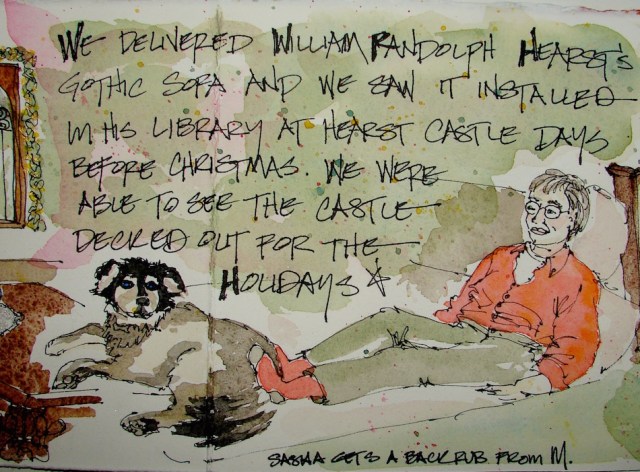 WE DELIVERED WILLIAM RANDOLPH HEARST'S
GOTHIC SOFA AND WE SAW IT INSTALLED
IN HIS LIBRARY AT HEARST CASTLE DAYS
BEFORE CHRISTMAS. WE WERE
ABLE TO SEE THE CASTLE
DECKED OUT FOR THE
HOLIDAYS &
SASHA GETS A BACK RUB FROM M.